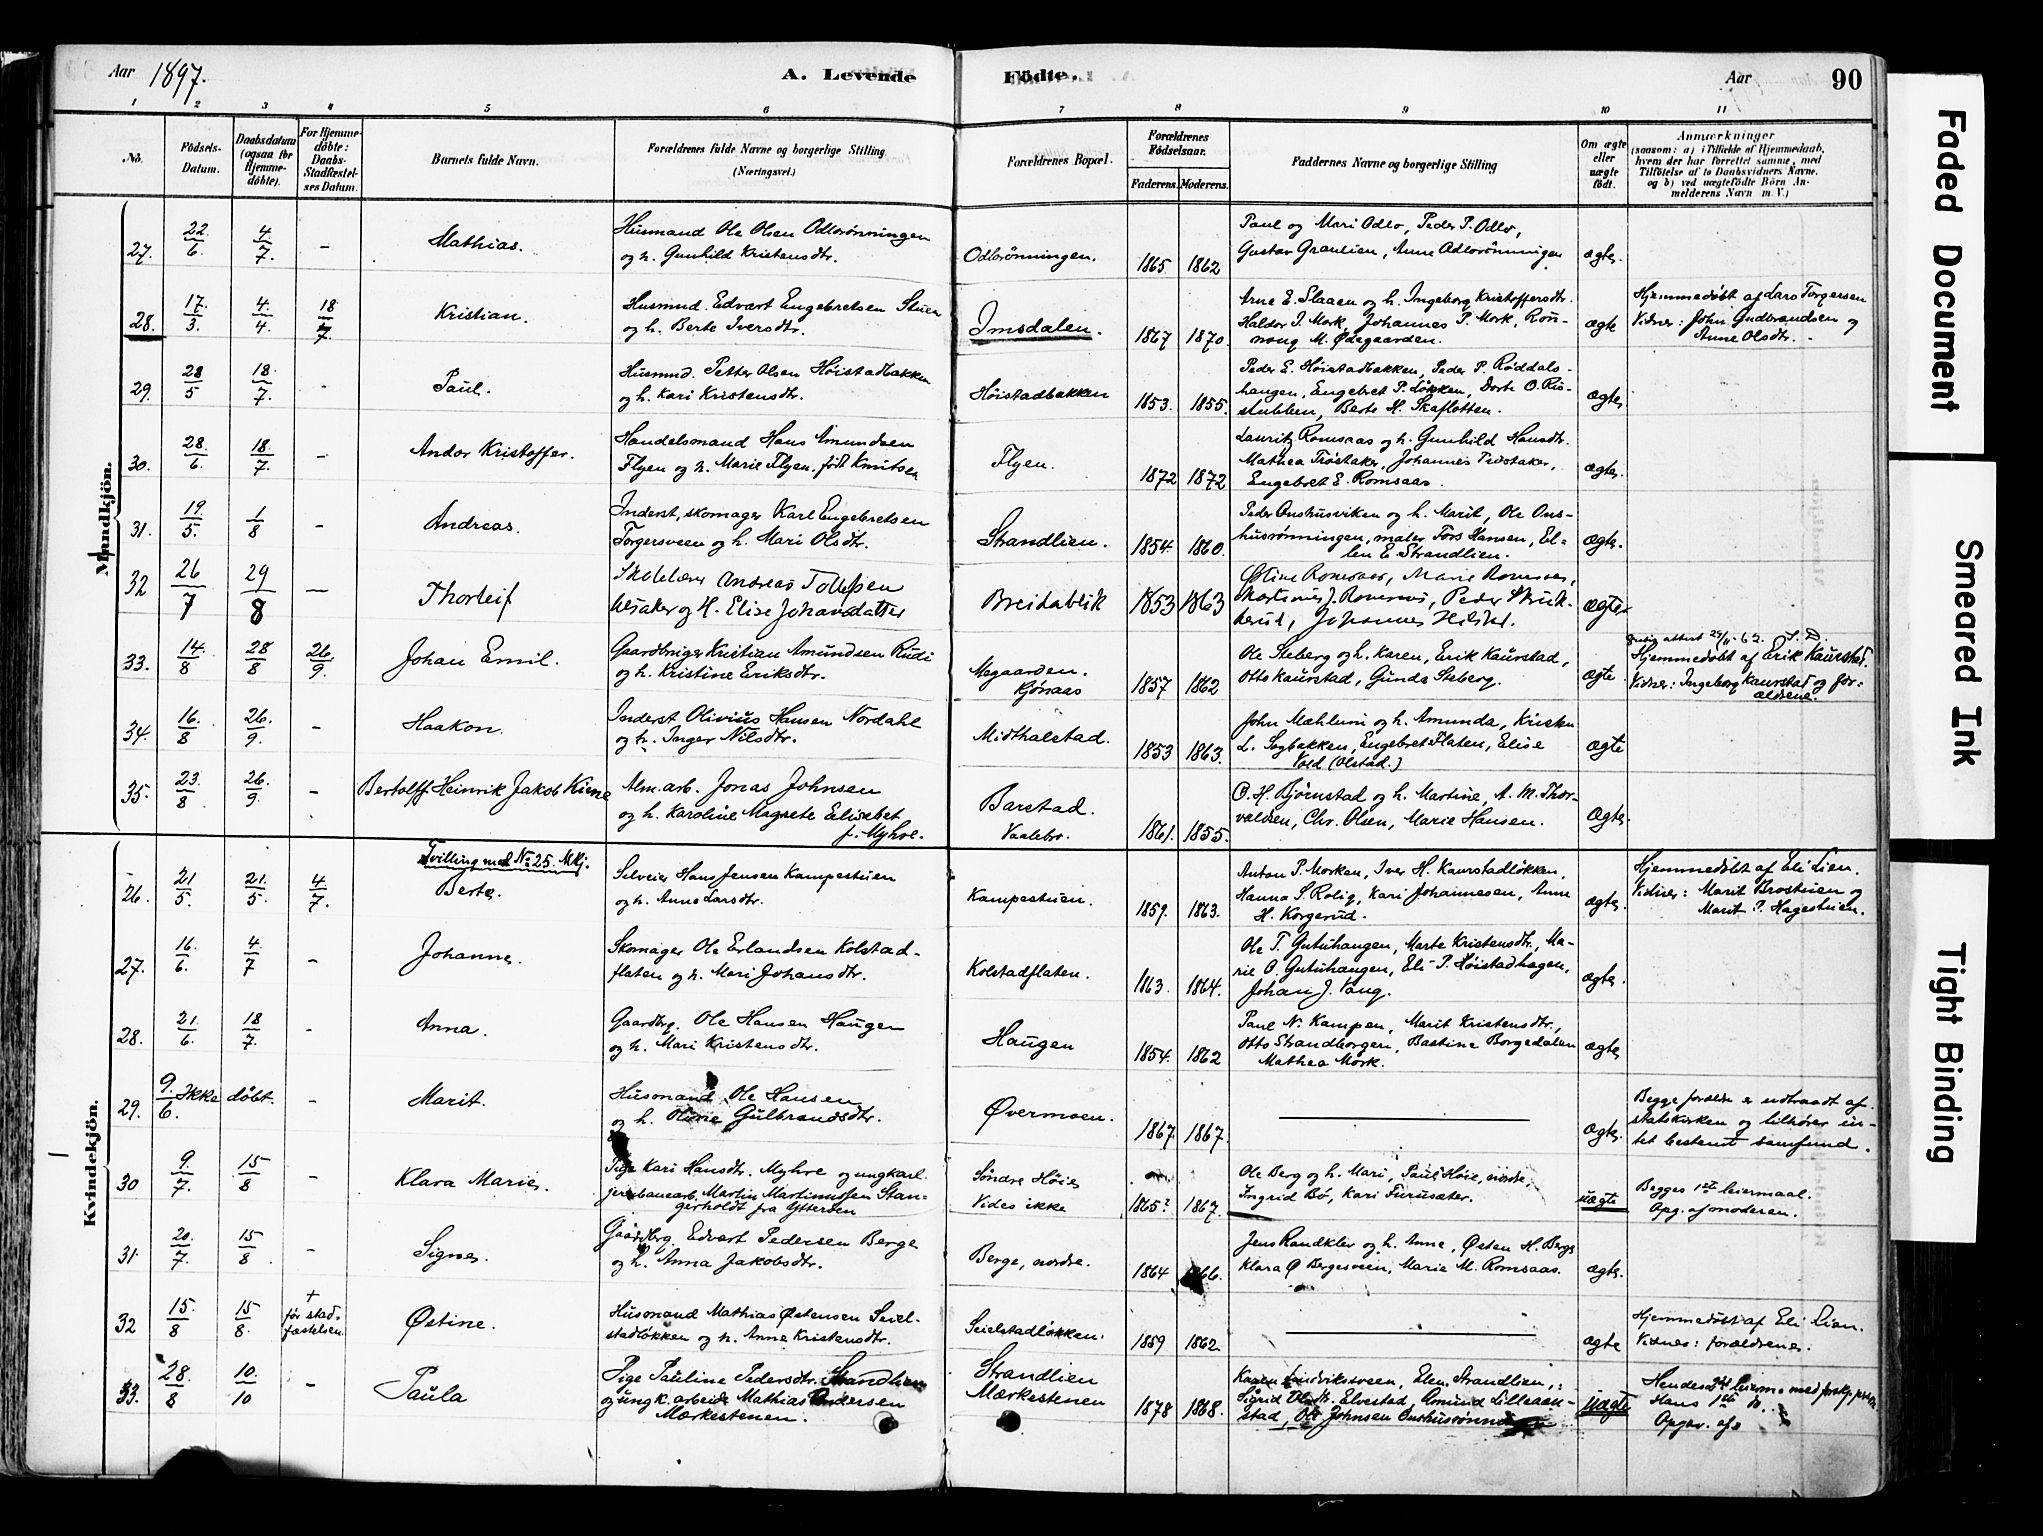 Aar 1897.
A. Levende Födte.
Aar
90
1 2 3 4 5 6 7 8 9 10 11
No.
Födsels-Datum.
Daabsdatum (ogsaa for Hjemme-döbte).
For Hjemme-döbte: Daabs-Stadfæstel-ses Datum.
Barnets fulde Navn.
Forældrenes fulde Navne og borgerlige Stilling (Næringsvei.)
Forældrenes Bopæl.
Forældrenes Födselsaar.
Faderens. Moderens.
Faddernes Navne og borgerlige Stilling
Om ægte eller uægte födt.
Anmærkninger
(saasom: a) i Tilfælde af Hjemmedaab,
hvem der har forrettet samme, med
Tilföielse af to Daabsvidners Navne,
og b) ved uægtefödte Börn An-
melderens Navn m. V.)
Mandkjön.
27. 22/6. 4/7. - Mathias.
Husmand Ole Olsen Odlorönningen
og h. Gunhild Kristensdtr.
Odlorönningen. 1865 1862
Paul og Mari Odlo, Peder P. Odlo,
Gustav Graulien, Anne Odlorönningen
ægte.
28. 17/3. 4/4. 18/7. Kristian.
Husmnd. Edvart Engebretsen Stuen
og h. Berte Iversdtr.
Imsdalen. 1867 1870.
Arne E. Slaaen og h. Ingeborg Kristoffersdtr.
Haldor I. Mork, Johannes P. Mork, Rön-
naug M. Ødegaarden.
ægte
Hjemmedöbt af Lars Torgersen
Vidner: John Gudbrandsen og
Anne Olsdtr.
29. 28/5 18/7. - Paul.
Husmnd. Petter Olsen Höistadbakken
og h. Kari Kristensdtr.
Höistadbakken 1853. 1855.
Peder E. Höistadbakken, Peder P. Röddals-
haugen, Engebret P. Lökken, Dorte O. Ris-
stubben, Berte H. Skafletten.
ægte.
30. 28/6. 18/7. - Andor Kristoffer.
Handelsmand Hans Amundsen
Flyen og h. Marie Flyen, födt Knutsen
Flyen. 1872 1872
Lauritz Romsaas og h. Gunhild Hansdtr.
Mathea Tröstaker, Johannes Tröstaker,
Engebret E. Romsaas.
ægte.
31. 19/5. 1/8 - Andreas.
Inderst, skomager Karl Engebretsen
Torgersveen og h. Mari Olsdtr.
Strandlien. 1854. 1860.
Peder Onshusviken og h. Marit, Ole Ons-
husrönningen, maler Tors Hansen, El-
len E. Strandlien.
ægte.
32 26/7 29/8 - Thorleif
Skolelærer Andreas Tollefsen
og H. Elise Johansdatter
Breidablik 1853 1863
Østine Romsaas, Marie Romsaas,
Martinus J. Romsaas, Peder
Johannes
ægte
33. 14./8 28/8 26./9. Johan Emil.
Gaardbruger Kristian Amundsen Rudi
og h. Kristine Eriksdtr.
Megaarden.
Kjönaas 1857 1862
Ole Steberg og h. Karen, Erik Kaurstad,
Otto Kaurstad, Gunda Steberg.
ægte.
attest 29/11-62.
Hjemmedöbt af Erik Kaurstad.
Vidner: Ingeborg Kaurstad og for-
ældrene.
34. 16./8 26./9. - Haakon.
Inderst Olivius Hansen Nordahl
og h. Inger Nilsdtr.
Midthalstad. 1853 1863.
John Mæhlum og h. Amunda, Kristen
L. Sogbakken, Engebret Flaten, Elise
Vold (Olstad.)
ægte
35. 23./8 26./9. - Bertolff Heinrik Jakob Kirne
Alm. arb. Jonas Johnsen
og h. Karoline Magrete Elisabet
f. Myhre.
Barstad.
Vaalebro. 1861. 1855.
O. H. Björnstad og h. Martine, A. M. Thor-
valdsen, Chr. Olsen, Marie Hansen.
Ægte.
Kvindekjön.
Tvilling med No 25. Mkj.
26. 21/5. 21./5. 4/7. Berte.
Selveier Hans Jensen Kampestuen
og h. Anne Larsdtr.
Kampestuen. 1859. 1863.
Anton P. Morken, Iver H. Kaurstadlökken,
Hanna S. Rolig, Kari Johannesen, Anne
H. Korgerud.
ægte.
Hjemmedöbt af Eli Lien.
Vidner: Marit Brostuen og
Marit P. Hagestuen.
27. 16./6. 4./7 - Johanne.
Skomager Ole Erlandsen Kolstad-
flaten og h. Mari Johansdtr.
Kolstadflaten. 1863. 1864.
Ole T. Gutuhaugen, Marte Kristensdtr., Ma-
rie O. Gutuhaugen, Eli P. Höistadhagen,
Johan J. Vang.
ægte.
28. 21./6. 18/7. - Anna.
Gaardbrg. Ole Hansen Haugen
og h. Mari Kristensdtr.
Haugen 1854. 1862
Paul N. Kampen, Marit Kristensdtr.,
Otto Strandborgen, Bastine Borgedalen
Mathea Mork.
ægte
29. 9./6. Ikke döbt. - Marit.
Husmand Ole Hansen
og h. Oline Gulbrandsdtr.
Øvermoen. 1867. 1867.
ægte.
Begge foreldre er udtraadt af
statskirken og tilhörer in-
tet bestemt samfund.
30 9./7. 15/8 - Klara Marie.
Pige Kari Hansdtr. Myhre og ungkarl
jernbanearb. Martin Martinussen Stan-
gerholdt fra Ytteröen
Söndre Höie
Vides ikke 1865? 1867.
Ole Berg og h. Mari, Paul Höie, nordre,
Ingrid Bö, Kari Furusæter.
uægte
Begges 1ste leiermaal.
Opg. af moderen.
31. 20./7. 15/8 - Signe.
Gaardbrg. Edvart Pedersen Berge
og h. Anna Jakobsdtr.
Berge, nordre. 1864 1866.
Jens Randklev og h. Anne, Østen H. Berge
Klara Ø Bergesveen, Marie M. Romsaas.
ægte.
32 15./8 15/8. † för stad-fæstelsen. Østine.
Husmand Mathias Østensen Seiel-
stadlökken og h. Anne Kristensdtr.
Seielstadlökken. 1859 1862.
ægte
Hjemmedöbt af Eli Lien.
Vidnes: forældrenes.
33. 28./8 10./10 - Paula
Pige Pauline Pedersdtr. Strandlien
og ungk. arbeider Mathias Andersen
Mærkestenen.
Strandlien
Mærkestenen 1878 1868.
Karen Lundviksveen, Elen Strandlien,
Sigrid Olsdtr. Elvestad, Amund Lilleaan-
stad, Ole Johnsen Onshusrönn
uægte
Hendes leierm. med forskj.
Hans 1ste
Opgv. af
Faded Document
Smeared Ink
Tight Binding